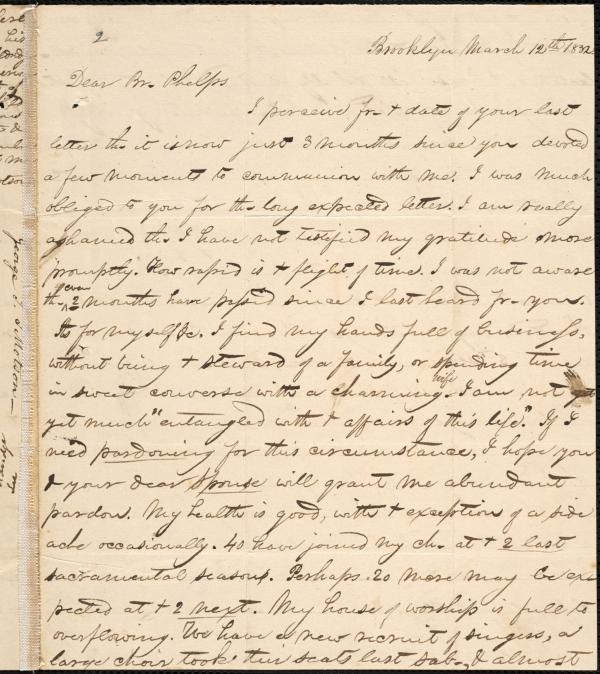 2
Brooklyn March 12th 1832
Dear Br. Phelps
I perceive fr. + date of your last
letter th. it is now just 3 months since you devoted
a few moments to communion with me. I was much
obliged to you for th. long expected letter. I am really
ashamed th. I have not testified my gratitude more
promptly. How rapid is + flight of time. I was not aware
th. even 2 months have pass'd since I last heard fr. you.
As for myself &c. I find my hands full of business,
without being + steward of a family, or spending time
in sweet converse with a charming wife. I am not
yet much "entangled with + affairs of this life". If I
need pardoning for this circumstance, I hope you
& your dear spouse will grant me abundant
pardon. My health is good, with + exception of a side
ache occasionally. 40 have joined my ch. at + 2 last
sacramental seasons. Perhaps 20 more may be ex
pected at + 2 next. My house of worship is full to
overflowing. We have a new recruit of singers, a
large choir took their seats last sab., & almost